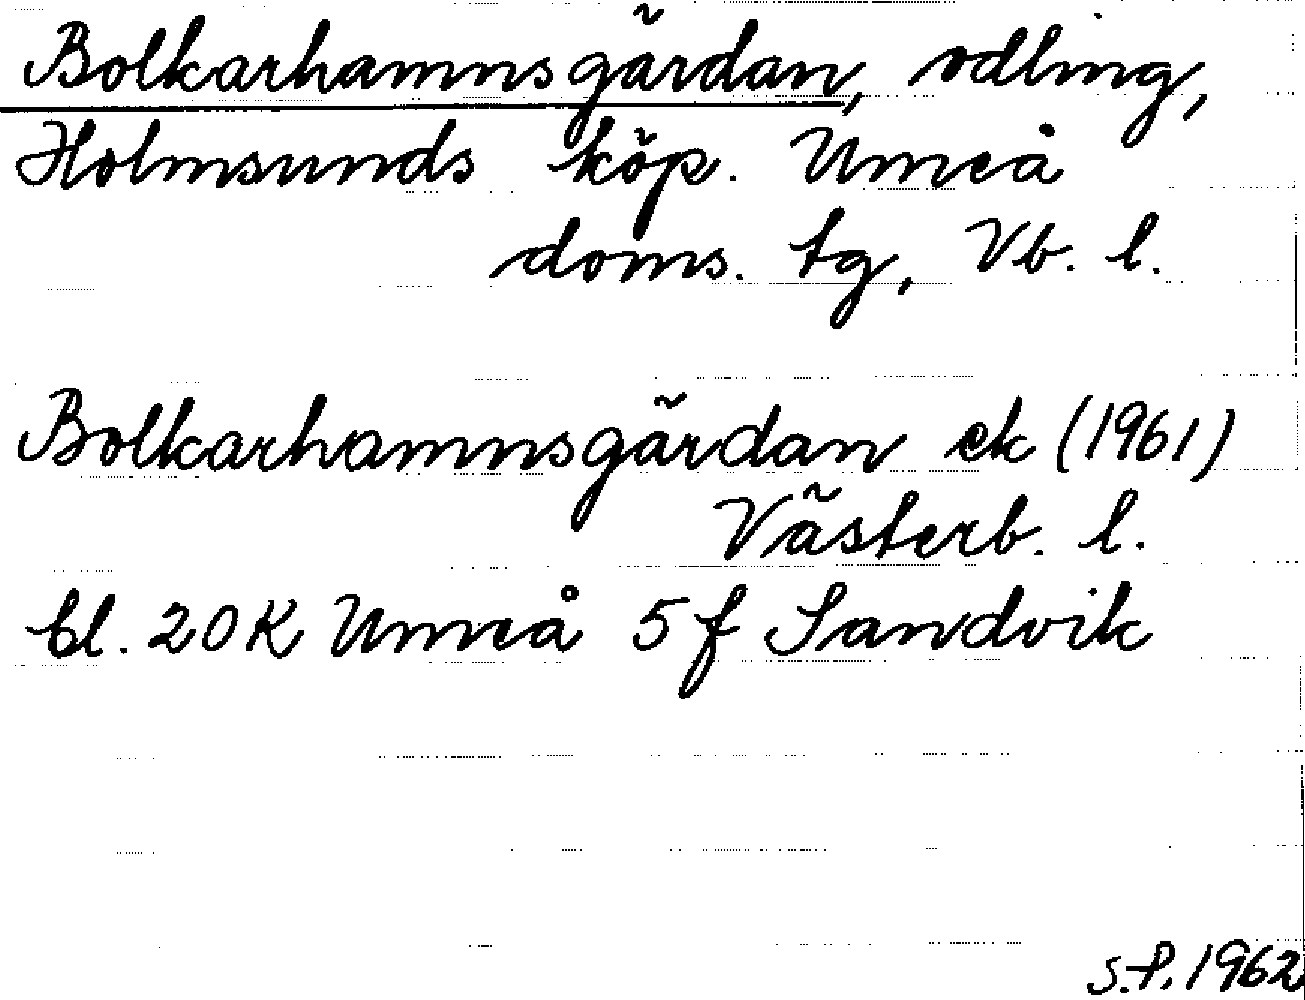 Bolkarhamnsgärdan, odling,
Holmsunds köp. Umeå
doms. tg, Vb. l.
Bolkarhamnsgärdan ek (1961)
Västerb. l.
bl. 20K Umeå 5f Sandvik
S.P. 1962